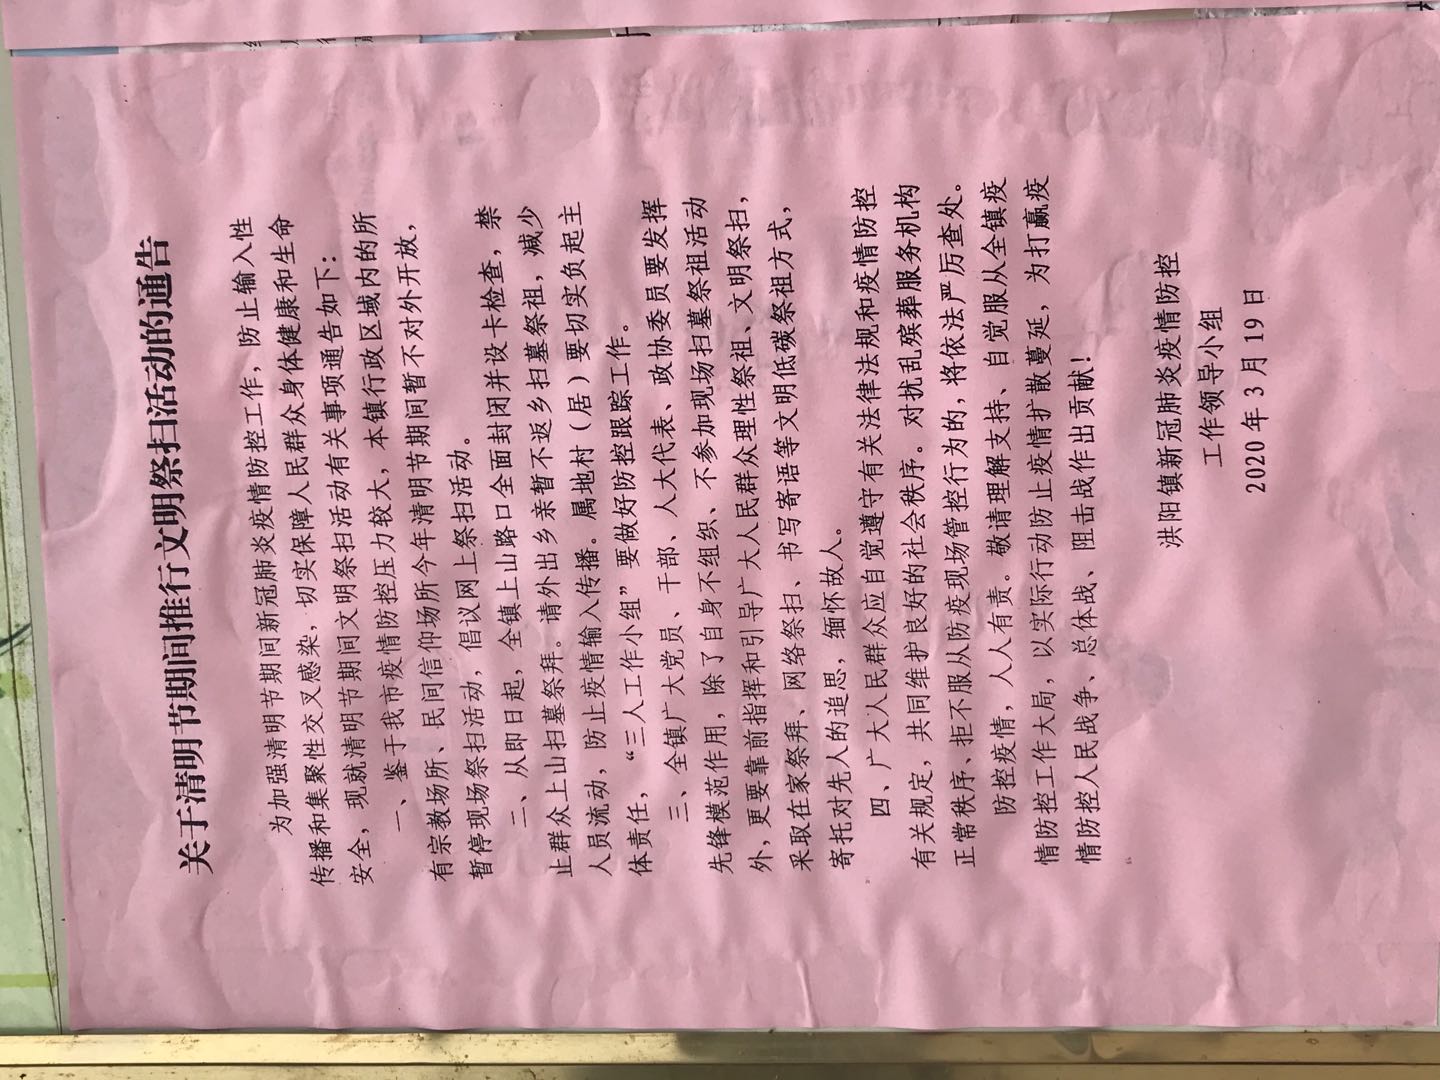 关于清明节期间推行文明祭扫活动的通告
为加强清明节期间新冠肺炎疫情防控工作，防止输入性
传播和集聚性交叉感染，切实保障人民群众身体健康和生命
安全，现就清明节期间文明祭扫活动有关事项通告如下：
一、鉴于我市疫情防控压力较大，本镇行政区域内的所
有宗教场所、民间信仰场所今年清明节期间暂不对外开放，
暂停现场祭扫活动，倡议网上祭扫活动。
二、从即日起，全镇上山路口全面封闭并设卡检查，禁
止群众上山扫墓祭拜。请外出乡亲暂不返乡扫墓祭祖，减少
人员流动，防止疫情输入传播。属地村（居）要切实负起主
体责任，“三人工作小组”要做好防控跟踪工作。
三、全镇广大党员、干部、人大代表、政协委员要发挥
先锋模范作用，除了自身不组织、不参加现场扫墓祭祖活动
外，更要靠前指挥和引导广大人民群众理性祭祖、文明祭扫，
采取在家祭拜、网络祭扫、书写寄语等文明低碳祭祖方式，
寄托对先人的追思，缅怀故人。
四、广大人民群众应自觉遵守有关法律法规和疫情防控
有关规定，共同维护良好的社会秩序。对扰乱殡葬服务机构
正常秩序、拒不服从防疫现场管控行为的，将依法严厉查处。
防控疫情，人人有责。敬请理解支持、自觉服从全镇疫
情防控工作大局，以实际行动防止疫情扩散蔓延，为打赢疫
情防控人民战争、总体战、阻击战作出贡献！
洪阳镇新冠肺炎疫情防控
工作领导小组
2020年3月19日